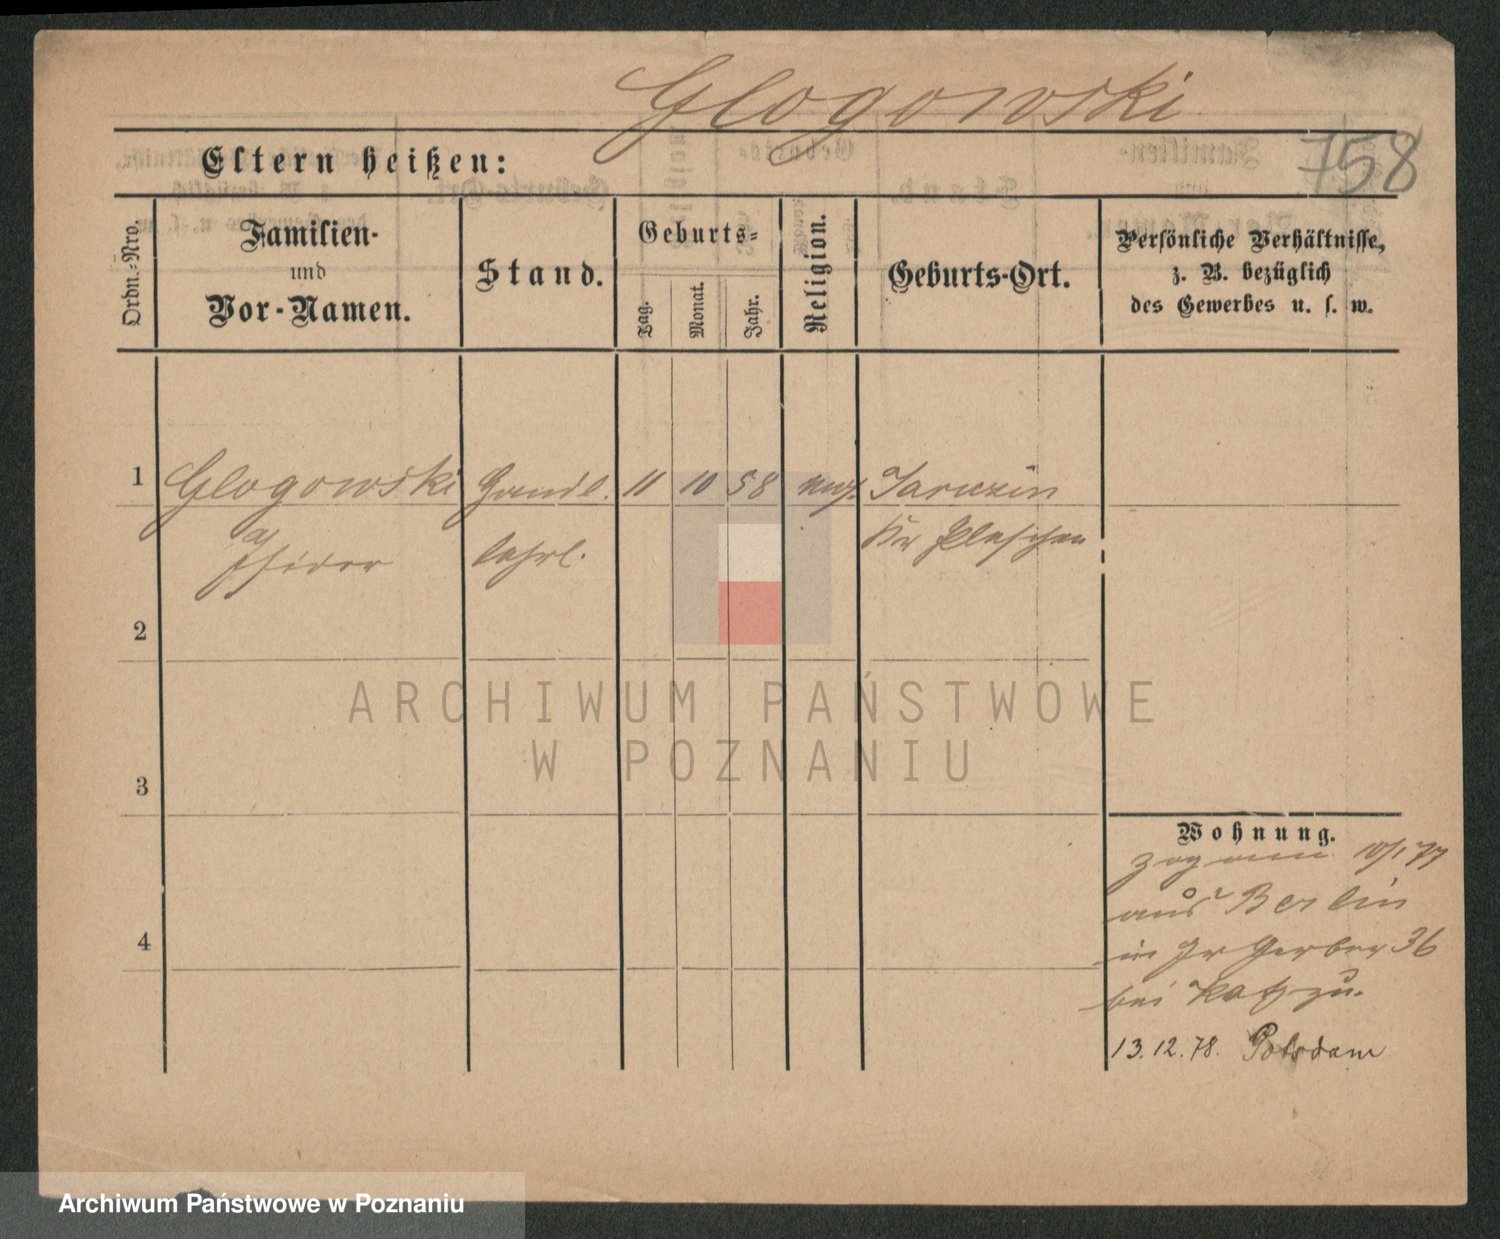 Glogowski
758
Eltern heißen:
Ordn.-Nro.
Familien-
und
Vor-Namen.
Stand.
Geburts-
Tag.
Monat.
Jahr.
Religion.
Geburts-Ort.
Persönliche Verhältnisse,
z. B. bezüglich
des Gewerbes u. s. w.
1 Glogowski Handl. 11 10 58 mos. Jarozin
Isidor lehrl. Kr Pleschen
2
3
4
Wohnung.
zog am 10/1 77
aus Berlin
in Gr Gerber 36
bei Katz zu.
13.12.78. Potsdam
ARCHIWUM PAŃSTWOWE
W POZNANIU
Archiwum Państwowe w Poznaniu